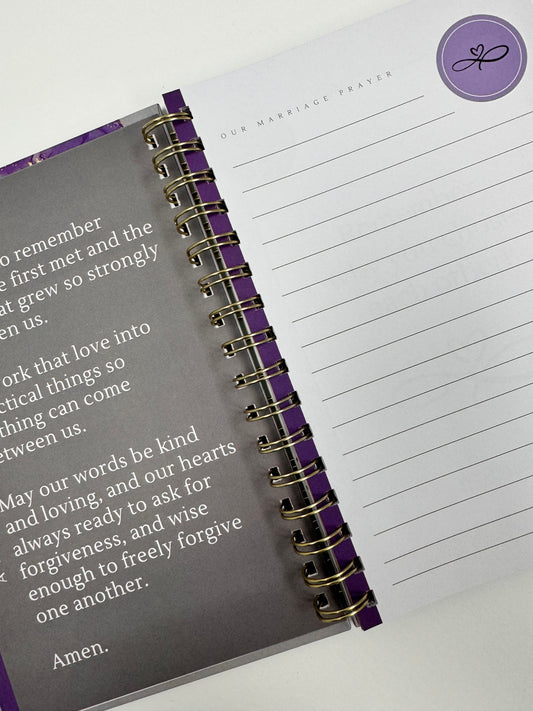 o remember
e first met and the
at grew so strongly
en us.
ork that love into
ctical things so
thing can come
etween us.
May our words be kind
and loving, and our hearts
always ready to ask for
forgiveness, and wise
enough to freely forgive
one another.
Amen.
OUR MARRIAGE PRAYER